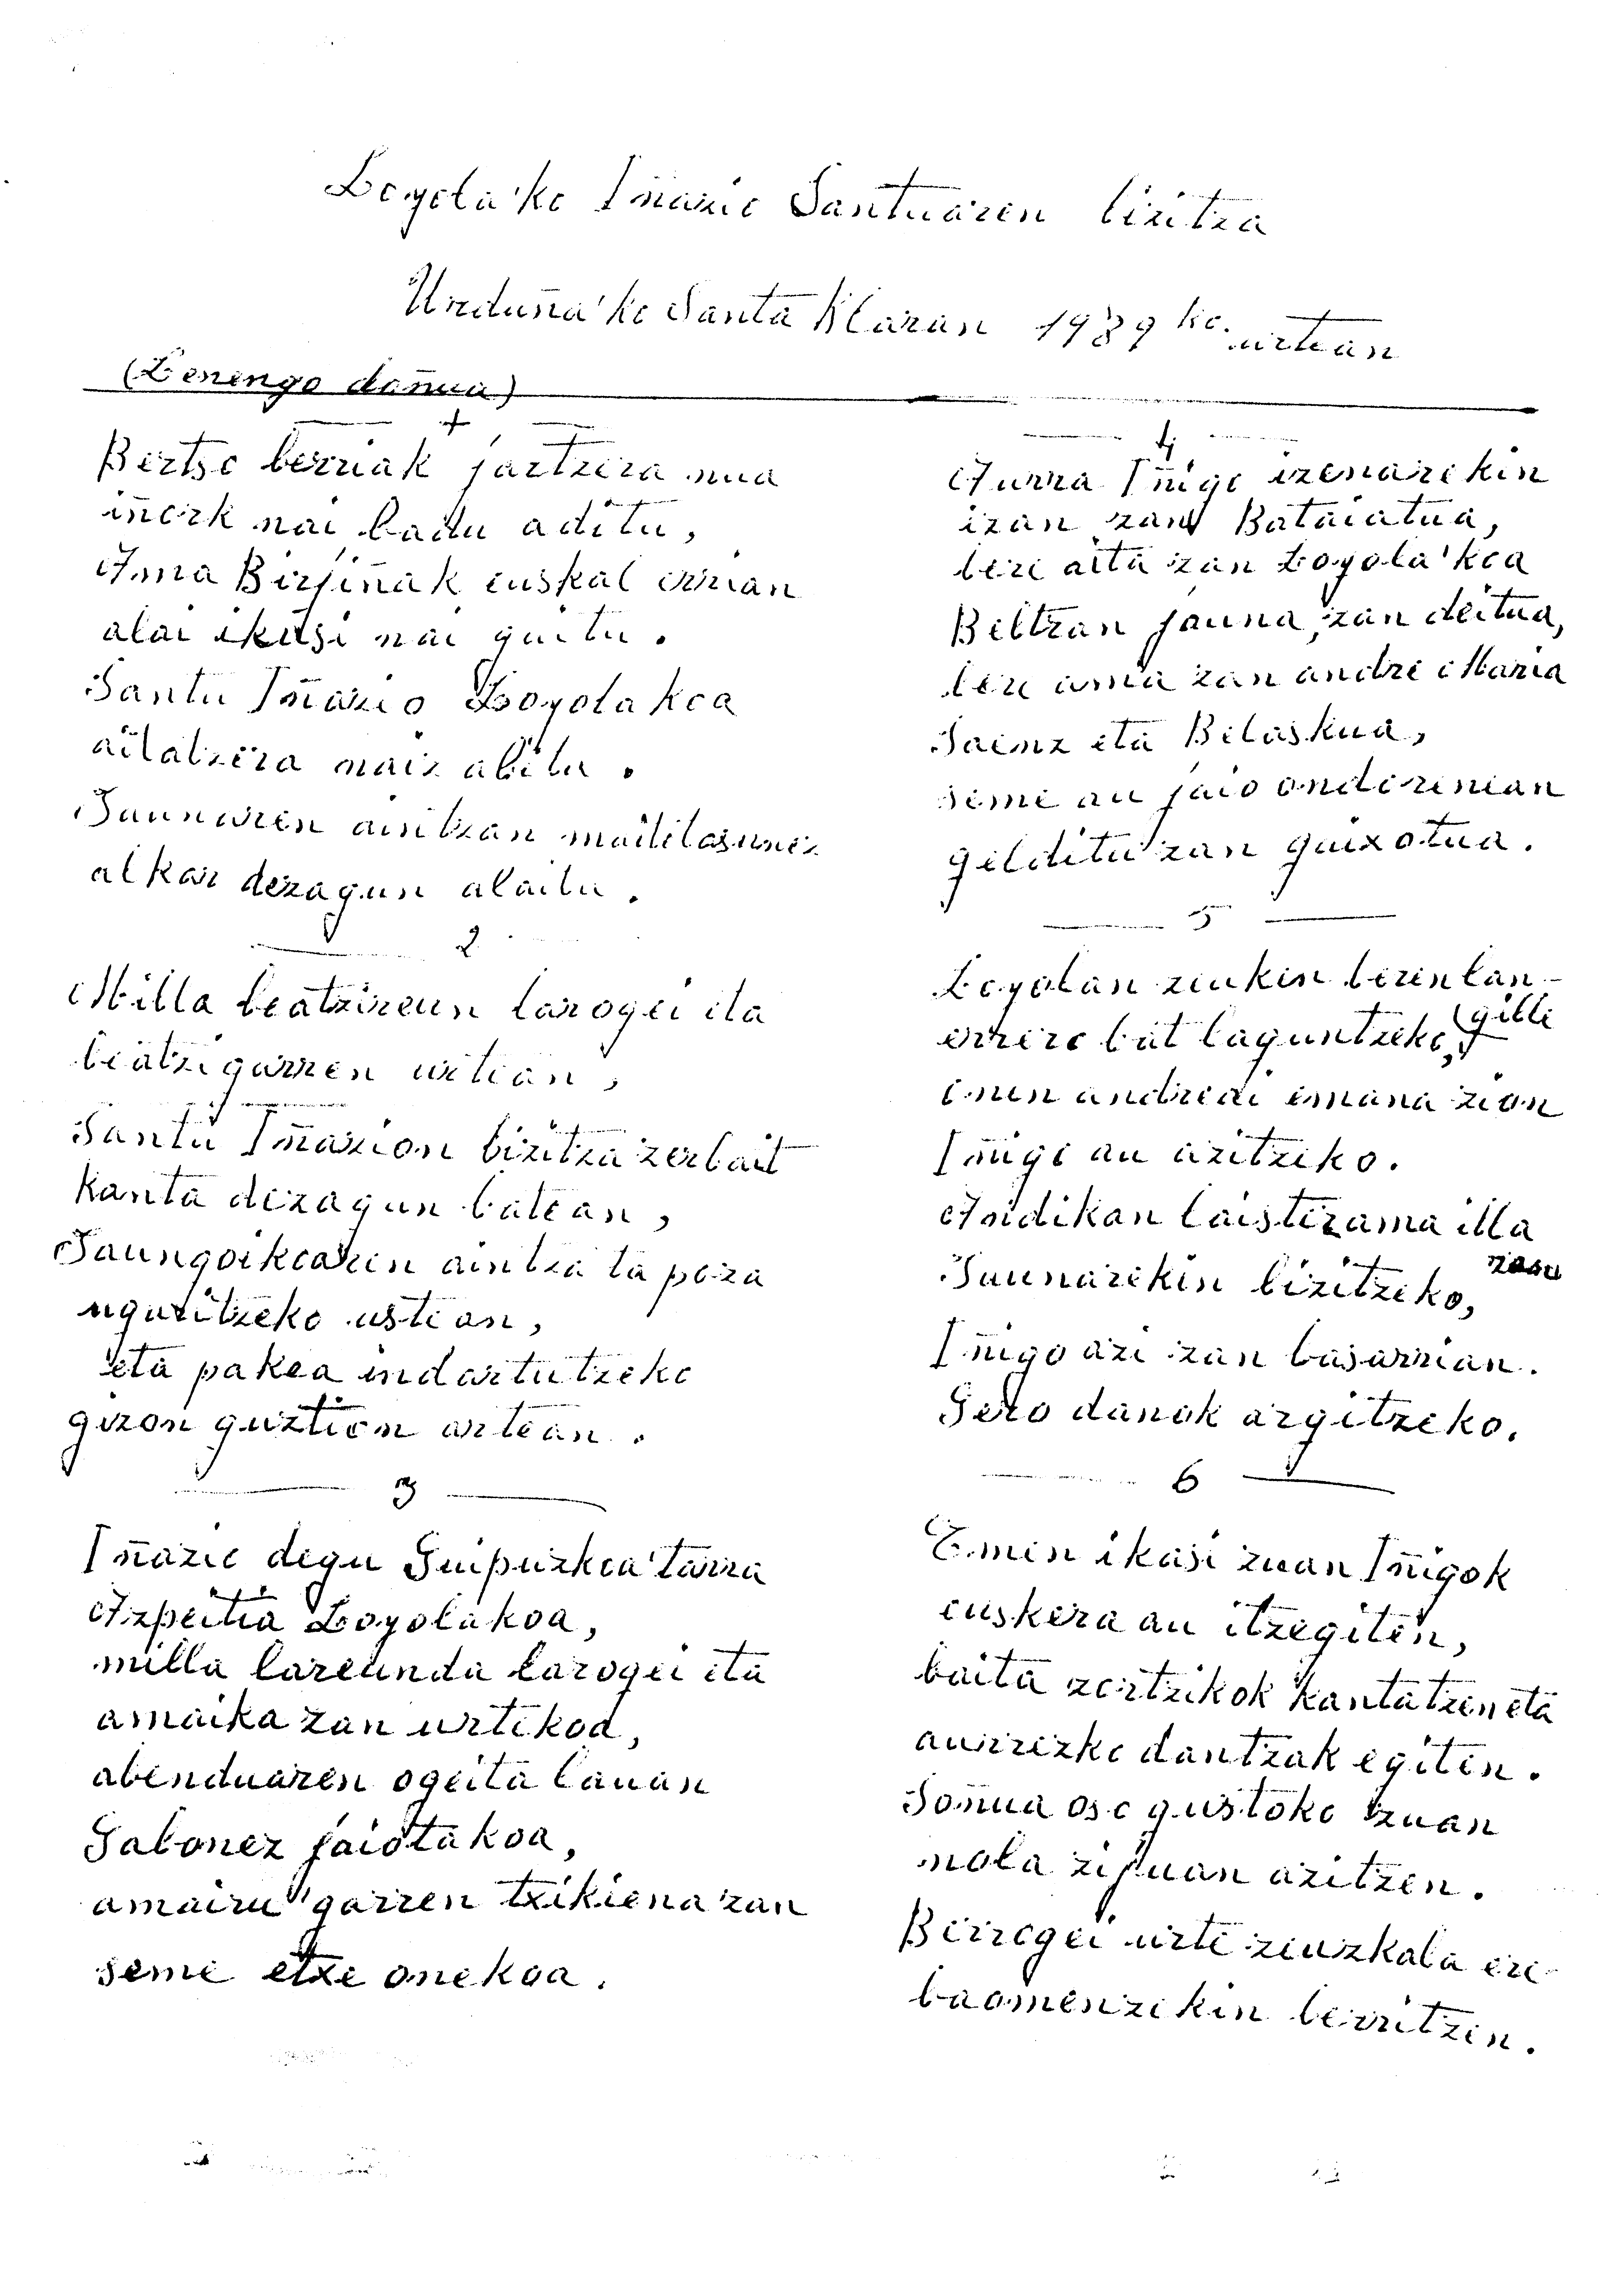 Loyola'ko Iñazio Santuaren bizitza
Urduña'ko Santa Klaran 1989 ko. urtean
(Lenengo doñua)
1
Bertso berriak jartzera nua
iñork nai badu aditu,
Ama Birjiñak euskal errian
alai ikusi nai gaitu.
Santu Iñazio Loyolakoa
ailatzera naiz abitu.
Jaunaren aintzan maitetasunez
alkar dezagun alaitu.
2
Milla beatzireun larogei eta
beatzigarren urtean,
Santu Iñazion bizitza zerbait
kanta dezagun batean,
Jaungoikoaren aintza ta poza
ugaritzeko ustean,
eta pakea indartutzeko
gizon guztion artean.
3
Iñazio degu Guipuzkoa'tarra
Azpeitia Loyolakoa,
milla lareunda larogei eta
amaika zan urtekoa,
abenduaren ogeita lauan
Gabonez jaiotakoa,
amairu'garren txikiena zan
seme etxe onekoa.
4
Aurra Iñigo izenarekin
izan zan Bataiatua,
bere aita zan Loyola'koa
Beltran jauna, zan deitua,
bere ama zan andre Maria
Saenz eta Belaskua,
seme au jaio ondorenean
gelditu zan gaixotua.
5
Loyolan zeukin beren lan-
(gille
errero bat laguntzeko,
onen andreai emana zion
Iñigo au azitzeko.
Andikan laister ama illa
zasu
Jaunarekin bizitzeko,
Iñigo azi zan basarrian.
Gero danok argitzeko.
6
Emen ikasi zuan Iñigok
euskera au itzegiten,
baita zortzikok kantatzen eta
aurrezko dantzak egiten.
Soñua oso gustoko zuan
nola zijuan azitzen.
Berrogei urte zeuzkala ere
baomenzekin berritzen.